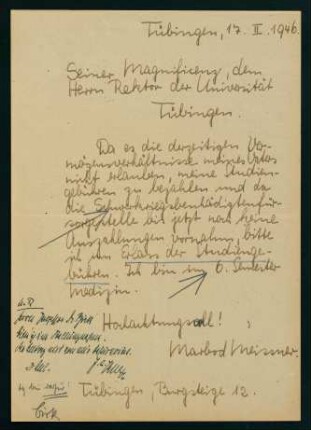 Tübingen, 17. II. 1946.
Seiner Magnificenz, dem
Herrn Rektor der Universität
Tübingen.
Da es die derzeitigen Ver-
mögensverhältnisse meines Vaters
nicht erlauben, meine Studien-
gebühren zu bezahlen und da
die Schwerkriegsbeschädigtenfür-
sorgestelle bis jetzt noch keine
Auszahlungen vornahm, bitte
ich um Erlass der Studienge-
bühren. Ich bin im 6. Semester
Medizin.
Hochachtungsvoll!
Marbod Meissner.
Tübingen, Burgsteige 12.
Herrn Professor Dr. Birk
Birk